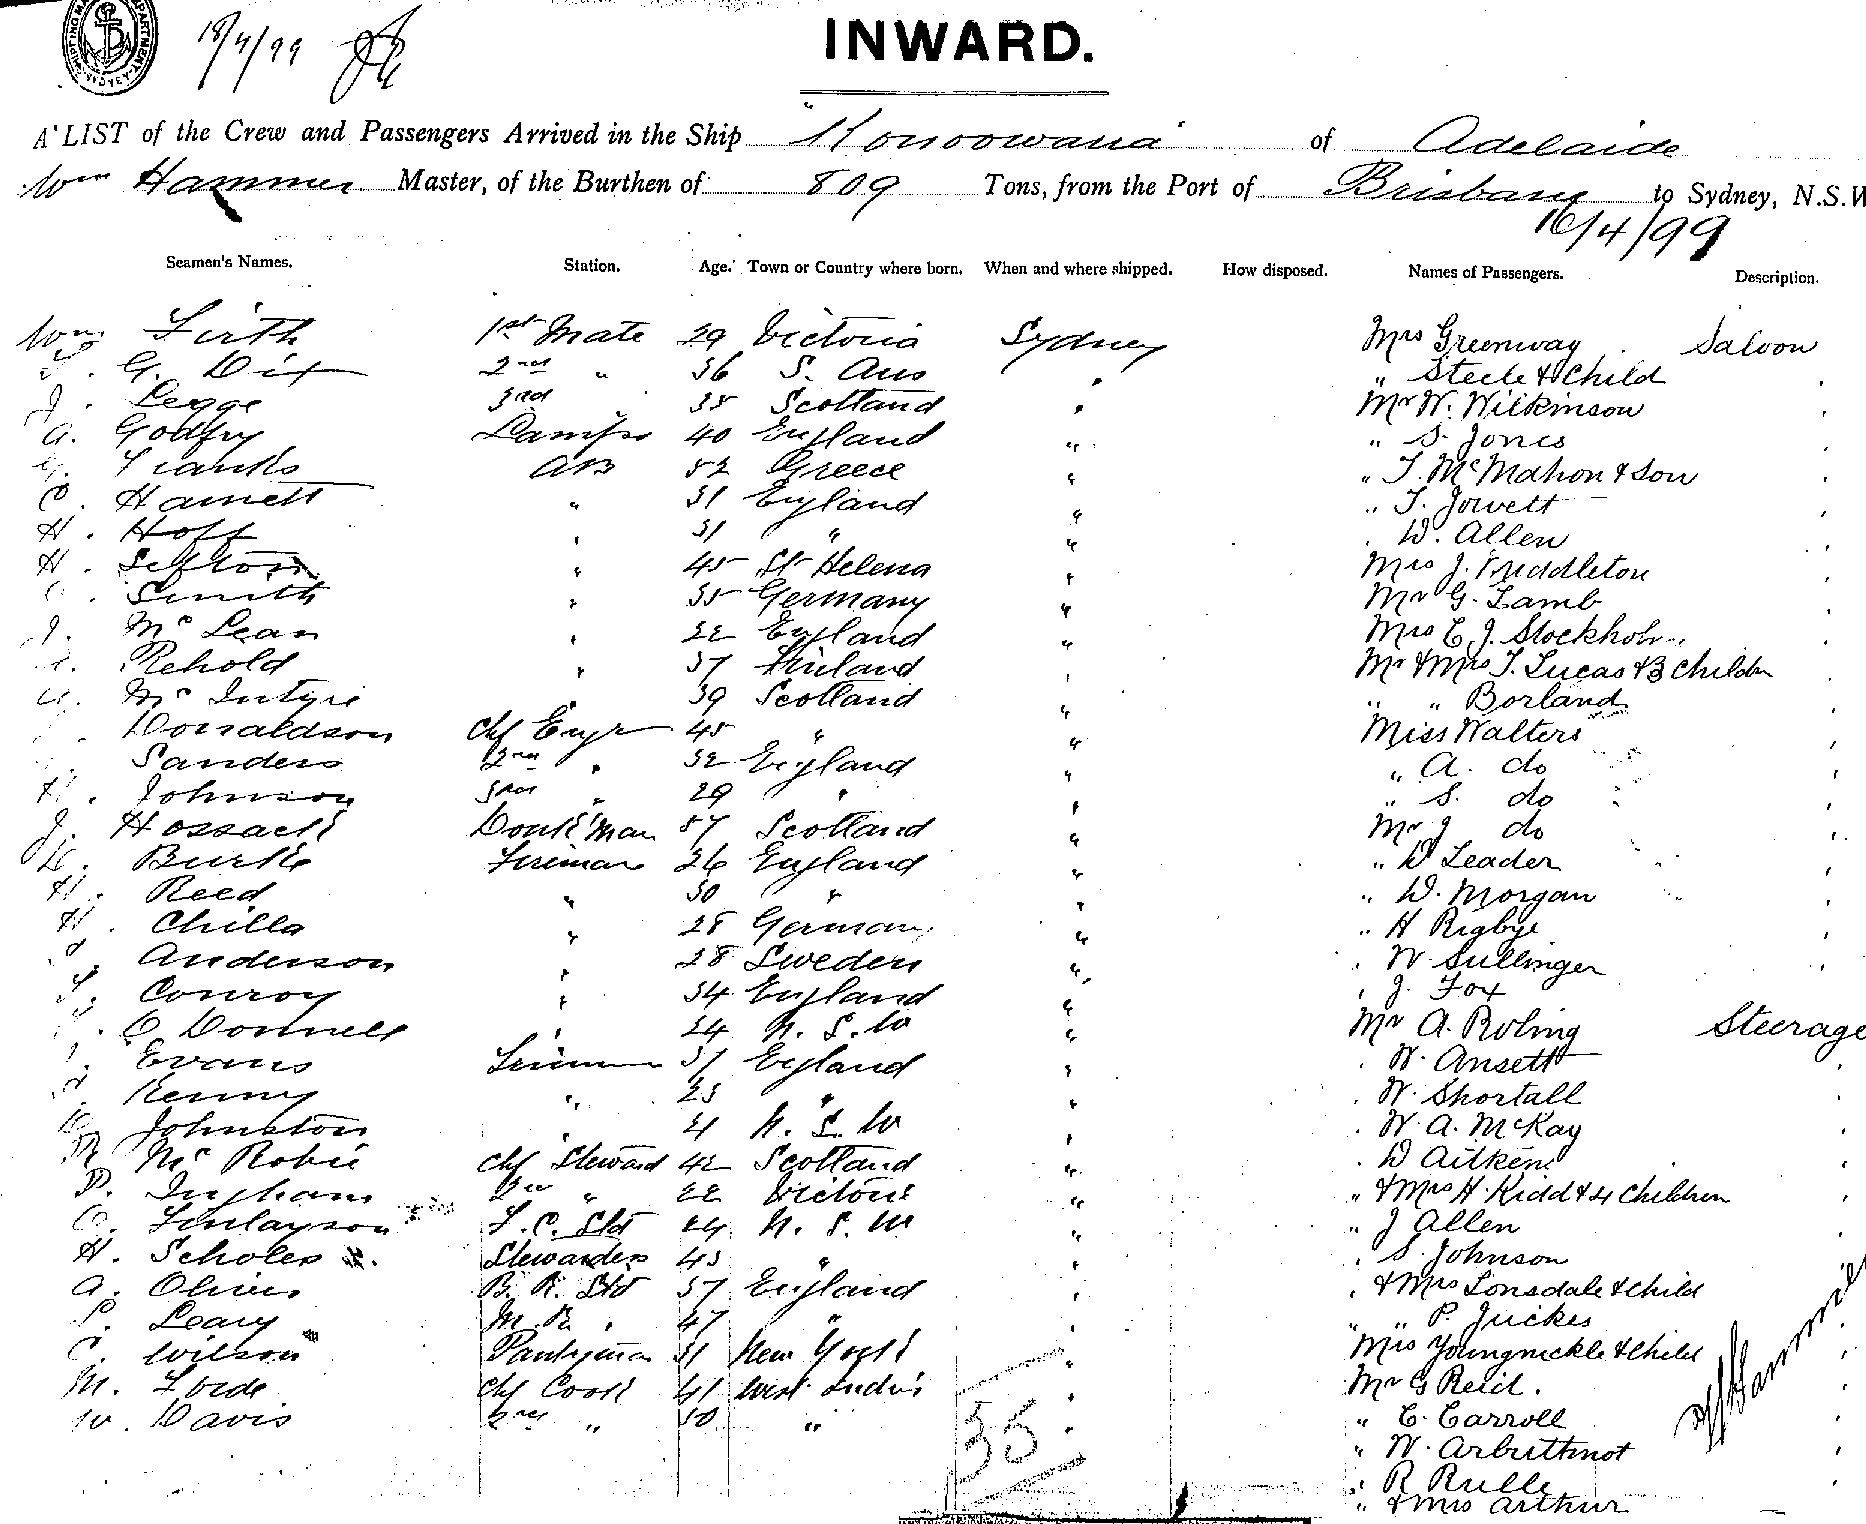 18/4/99
INWARD.
A LIST of the Crew and Passengers Arrived in the Ship "Konoowarra" of Adelaide
Wm Hammer Master, of the Burthen of 809 Tons, from the Port of Brisbane to Sydney, N.S.W
16/4/99
Seamen's Names. Station. Age. Town or Country where born. When and where shipped. How disposed. Names of Passengers. Description.
Wm Firth 1st Mate 29 Victoria Sydney Mrs Greenway Saloon
G. Dix 2nd " 36 S. Aus " " Steele & Child
J. Legge 3rd 35 Scotland " Mr W. Wilkinson
A. Godfry Lamps 40 England " " S. Jones
Franks AB 52 Greece " " T. McMahon & Son
C. Hamett " 31 England " " T. Jowett
H. Hoff " 31 " " " W. Allen
H. Sefton " 45 St Helena " Mrs J. Middleton
Smith " 35 Germany " Mr G. Lamb
J. McLean " 22 England " Mrs C. J. Stockholm
Rehold " 37 Finland " Mr & Mrs T. Lucas & 3 Childn
McIntyre 39 Scotland " " " Borland
Donaldson Chf Engr 45 " " Miss Walters
Sanders 2nd " 32 England " " A. do
H. Johnson 3rd " 29 " " " S. do
J. Hossack Donk'man 57 Scotland " Mr J do
Burke Fireman 26 England " " D Leader
H. Reed " 30 " " " W. Morgan
H. Chilla " 28 German " " H Rigbye
Anderson " 28 Sweden " " W. Sullinger
Conroy " 34 England " " J. Fox
O Donnell " 24 N. S. W " Mr A. Roling Steerage
Evans 31 England " " W. Ansett
Kenny " 23 " " " W. Shortall
Johnston " N. S. W " " W. A. McKay
R. McRobie Chf Steward 42 Scotland " " D Aitken
P. Ingham 2nd " 22 Victoria " " & Mrs H. Kidd & 4 Children
C. Finlayson F. C. Std 24 N. S. W " " J Allen
H. Scholes Stewardess 43 " " " S. Johnson
A. Oliver B. R. Std 37 England " " & Mrs Lonsdale & Child
Leary M. R. " 47 " " " " P. Juckes
C. Wilson Pantryman 31 New York " Mrs Youngnickle & Child
M. Forde Chf Cook 41 West Indies " Mr G Reid.
W. Davis 2nd " 50 " " " C. Carroll
35
" W. Arbuthnot
" R Rulle
" & Mrs Arthur